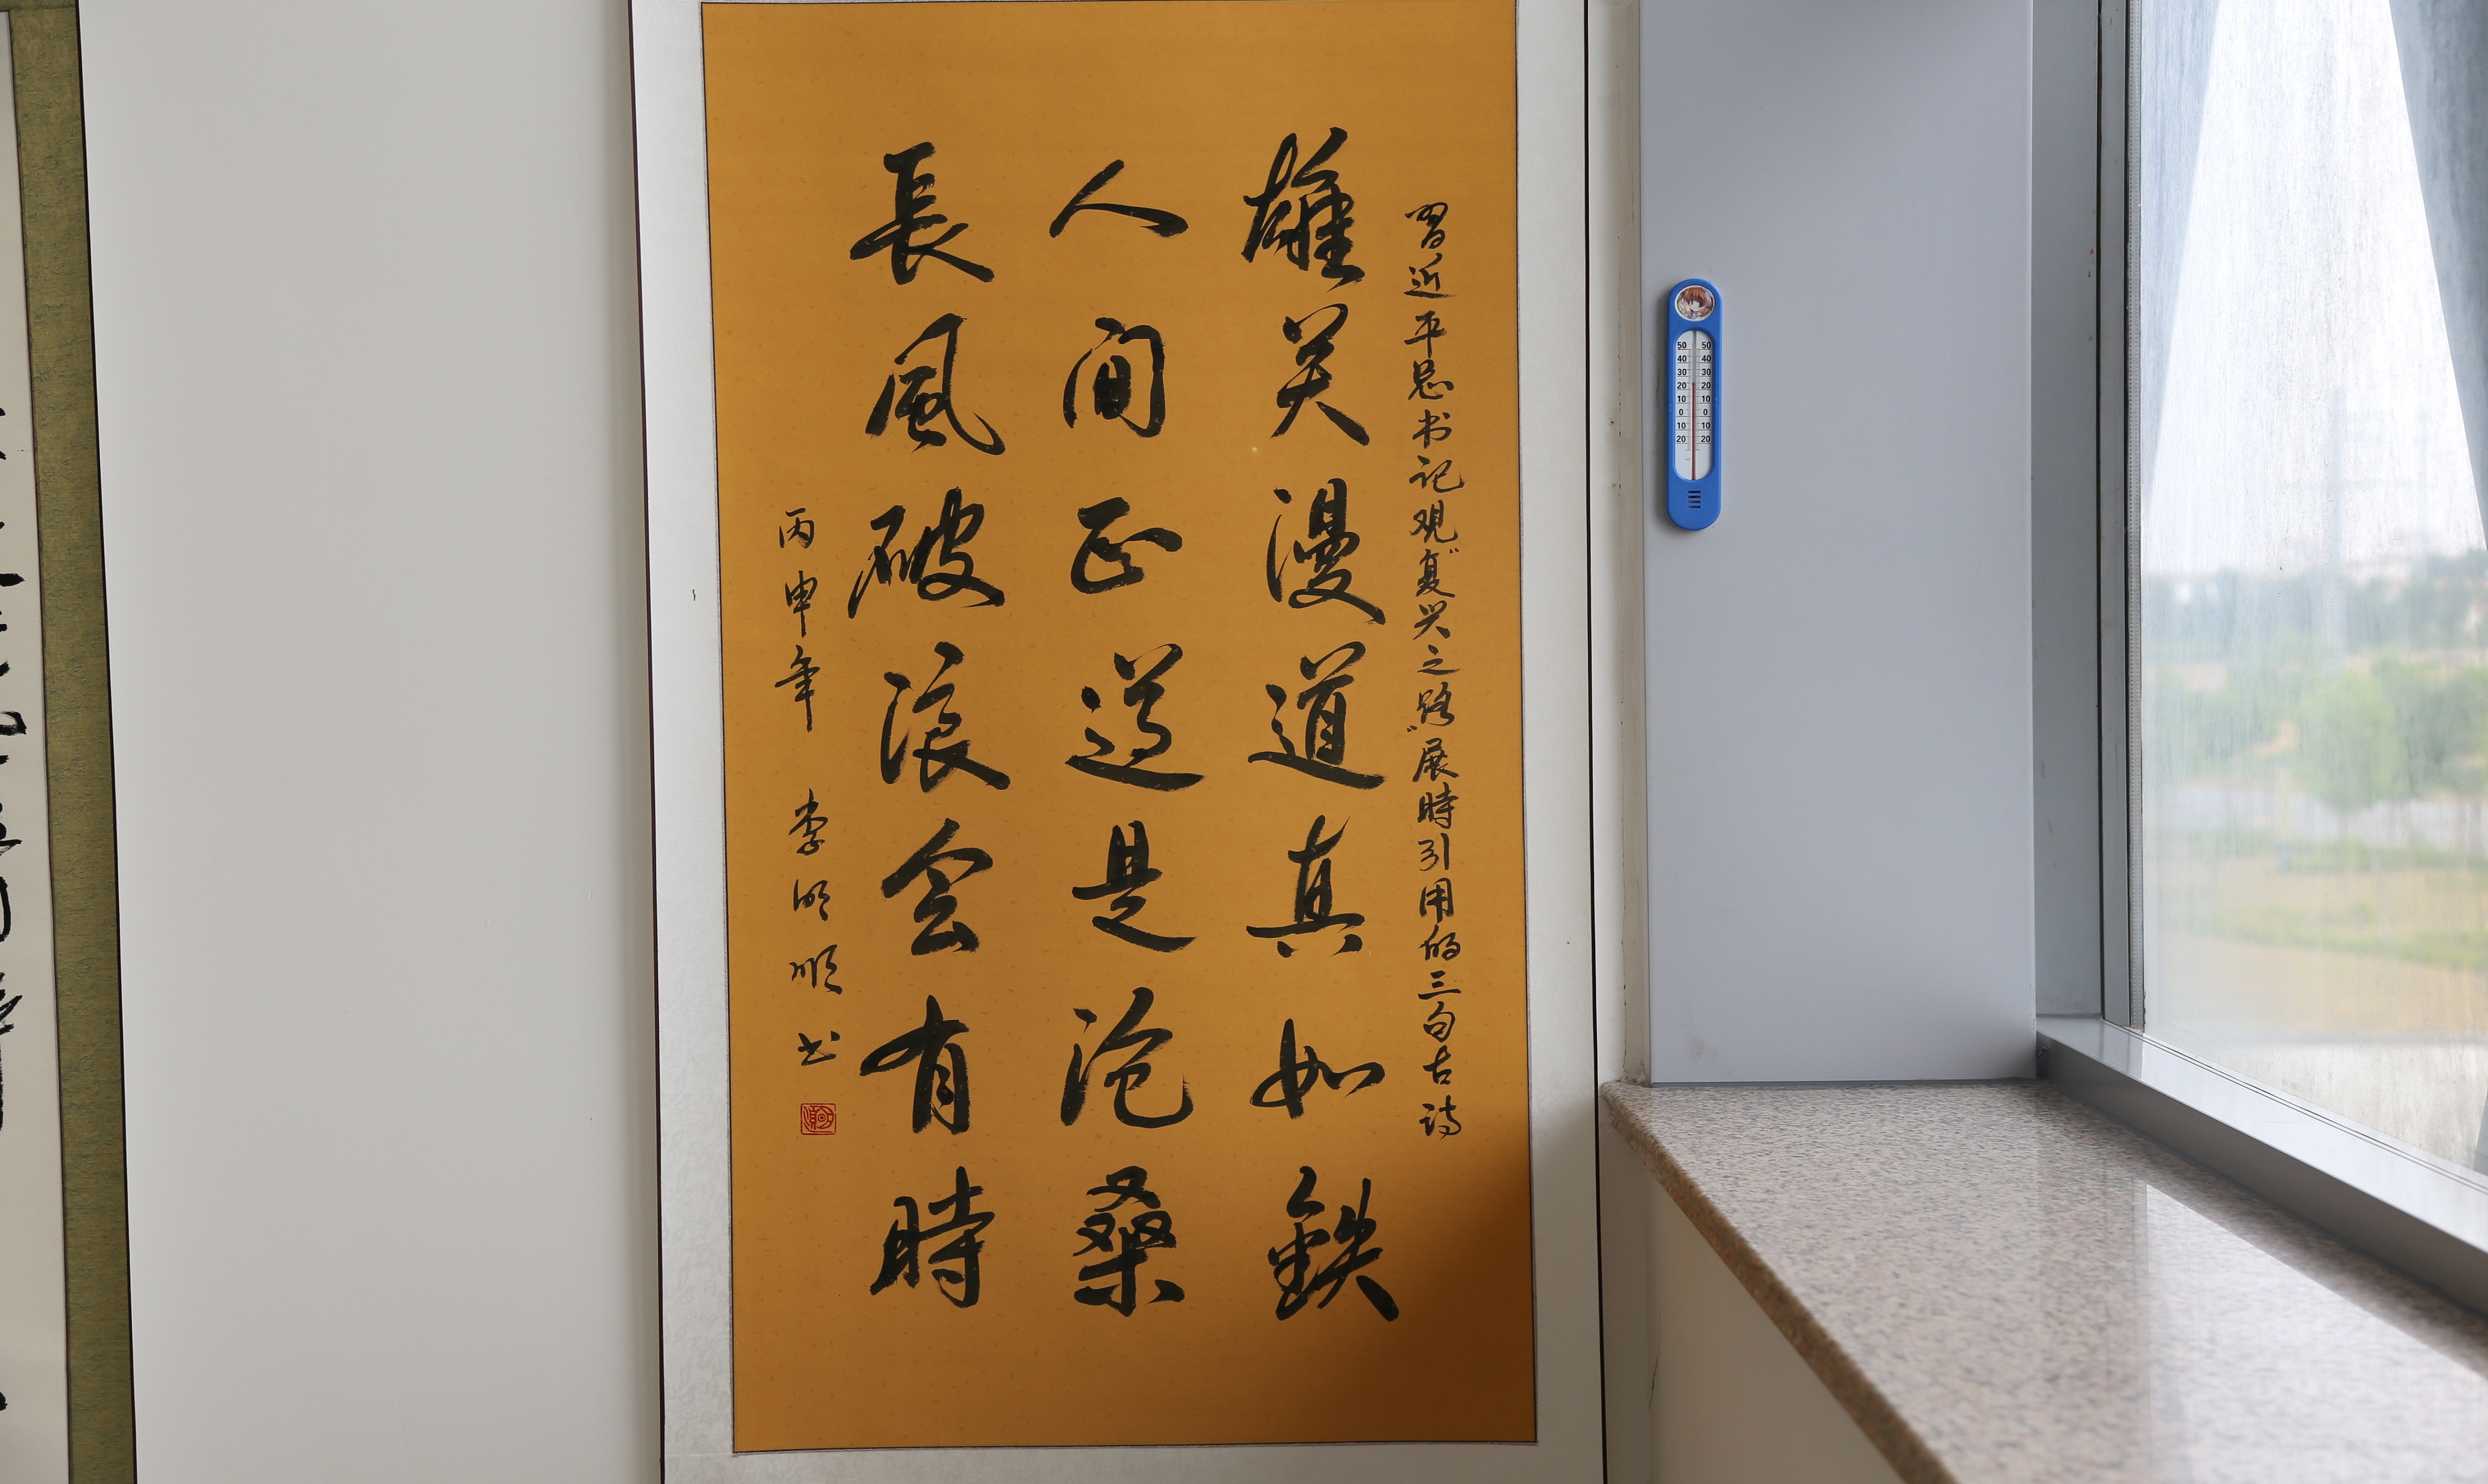 習近平总书记观"复兴之路"展時引用的三句古诗
雄关漫道真如鉄
人间正道是沧桑
長風破浪会有時
丙申年 李明顺书
50 50
40 40
30 30
20 20
10 10
0 0
10 10
20 20